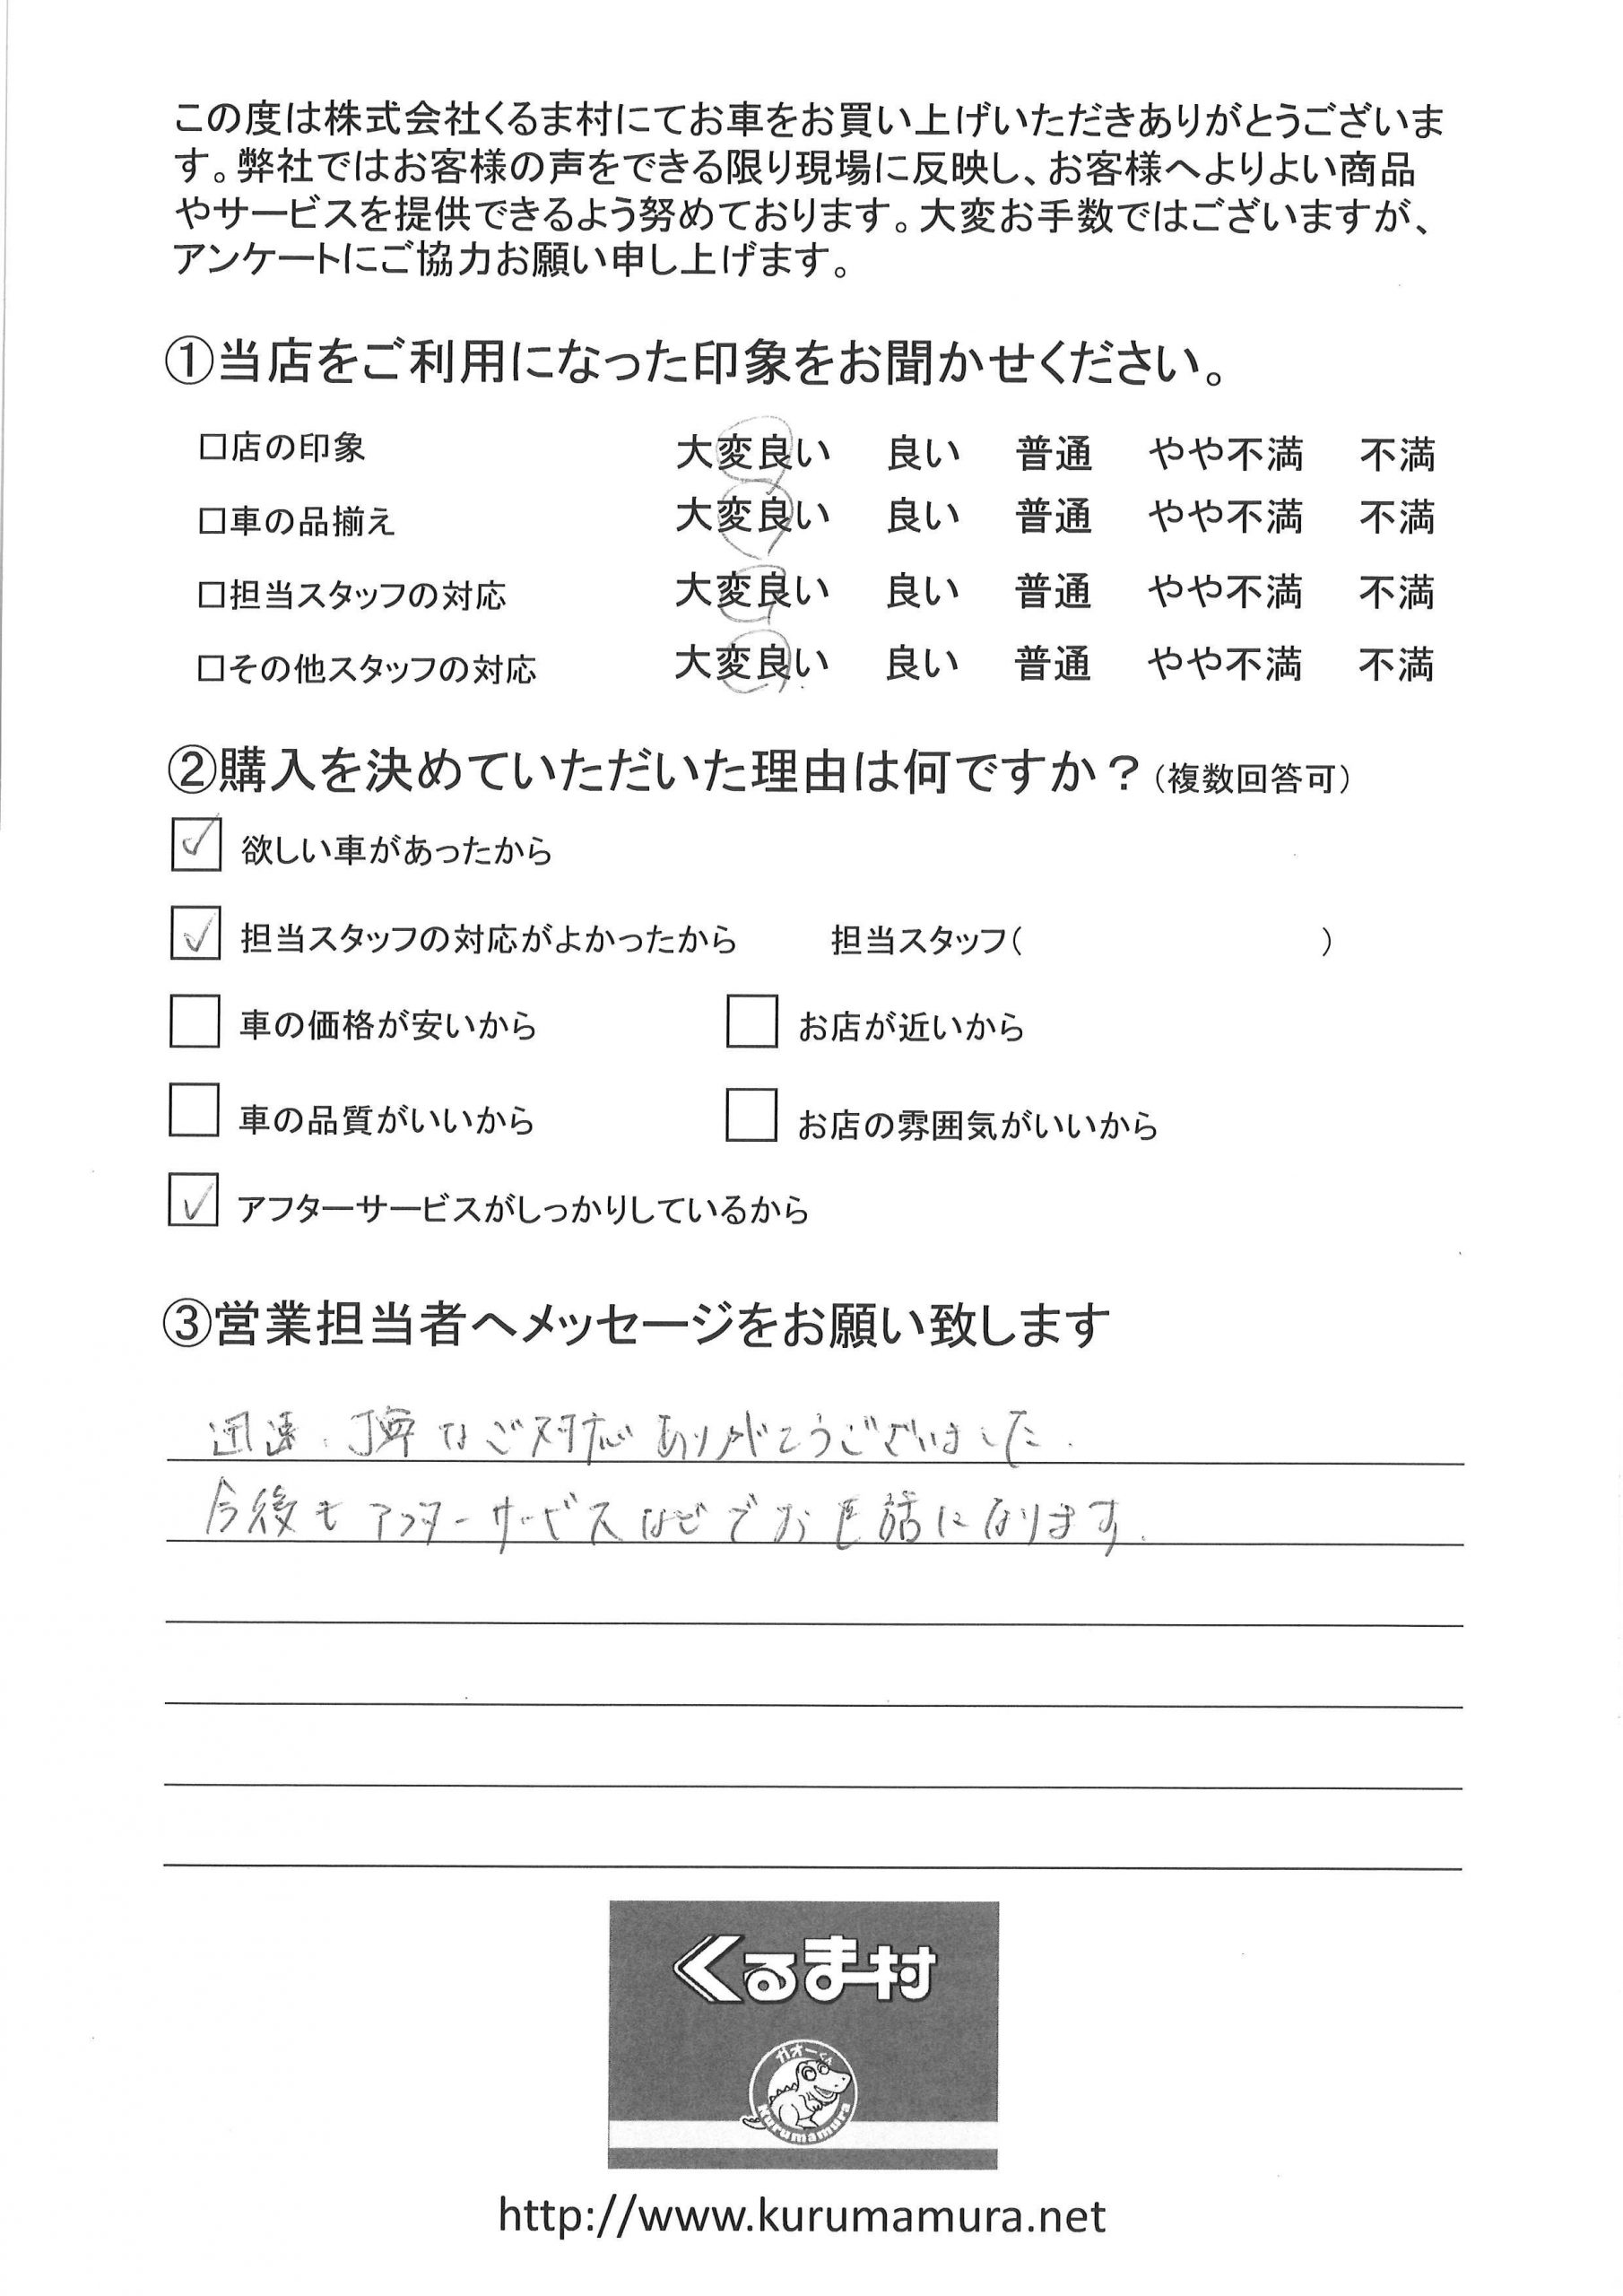 この度は株式会社くるま村にてお車をお買い上げいただきありがとうございま
す。弊社ではお客様の声をできる限り現場に反映し、お客様へよりよい商品
やサービスを提供できるよう努めております。大変お手数ではございますが、
アンケートにご協力お願い申し上げます。
①当店をご利用になった印象をお聞かせください。
□店の印象 大変良い 良い 普通 やや不満 不満
□車の品揃え 大変良い 良い 普通 やや不満 不満
□担当スタッフの対応 大変良い 良い 普通 やや不満 不満
□その他スタッフの対応 大変良い 良い 普通 やや不満 不満
②購入を決めていただいた理由は何ですか？(複数回答可)
☑ 欲しい車があったから
☑ 担当スタッフの対応がよかったから 担当スタッフ( )
□ 車の価格が安いから □ お店が近いから
□ 車の品質がいいから □ お店の雰囲気がいいから
☑ アフターサービスがしっかりしているから
③営業担当者へメッセージをお願い致します
迅速、丁寧なご対応ありがとうございました.
今後もアフターサービスなどでお世話になります.
くるま村
ガオーくん
Kurumamura
http://www.kurumamura.net